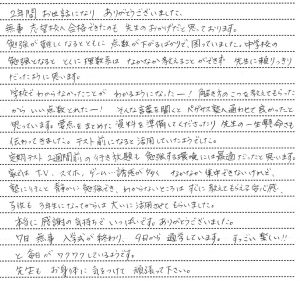 2年間 お世話になり ありがとうございました。
無事 志望校へ合格できたのも 先生のおかげだと思っております。
勉強が難しくなるとともに 点数が下がるばかりで、困っていました。中学校の
勉強となると とくに理数系は なかなか教えることができず 先生に頼りっきり
だったように思います。
学校でわからなかったことが わかるようになったー! 解き方のこつを教えてもらった
から いい点数とれたー! そんな言葉を聞くと ベガサス塾へ通わせて良かったと
思っています。要点をまとめた 資料を準備してくださったり 先生の一生懸命さも
伝わってきました。テスト前になると活用していたようでした。
定期テスト2週間前の 行き放題も 勉強する環境には最適だったと思います。
家では TV、スマホ、ゲーム… 誘惑が多く なかなか集中できないけれど、
塾に行くと 静かに勉強でき、わからないところは すぐに教えてもらえる安心感
3年生になってからは 大いに活用させてもらいました。
本当に 感謝の気持ちで いっぱいです。ありがとうございました。
7日 無事 入学式が終わり、9日から 通学しています。 すっごい 楽しい!!
と毎日が ワクワクしているようです。
先生も お身体に 気をつけて 頑張って下さい。